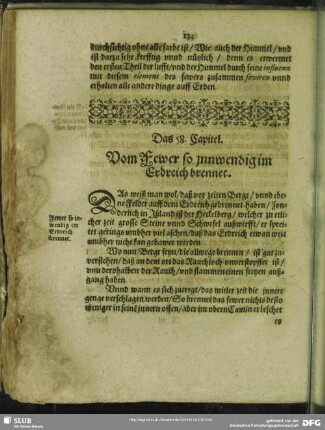 134
durchsichtig ohne alle farbe ist / Wie auch der Himmel / vnd
ist darzu sehr krefftig vnnd nützlich / denn es erwermet
den ersten Theil der lufft / vnd der Himmel durch seine influentz
mit diesem element des fewers zusammen
vnnd erhalten alle andere dinge auff Erden.
Das 58. Capitel.
Vom Fewer so innwendig im
Erdreich brennet.
DAs weiß man wol / daß vor zeiten Berge / vnnd ebe-
ne Felder auff dem Erdreich gebrennet haben / son-
derlich in Ißland ist der Heckelberg / welcher zu etli-
cher zeit grosse Steine vnnd Schwefel außwirfft / er sprei-
tet gerings vmbher viel aschen / daß das Erdreich etwan weit
vmbher nicht kan gebawet werden.
Fewer so in-
wendig im
Erdreich
brennet.
Wo nun Berge seyn / die allwege brennen / ist gut zu
verstehen / daß an dem ort das Rauchloch vnverstopffet ist /
von derhalben der Rauch / vnd flammen einen steten auß-
gang haben.
Vnnd wann es sich zutregt / das mitler zeit die innere
genge verschlagen werden / So brennet das fewer nichts desto
weniger in seinē jnnern ofen / aber im obern Camin er leschet
es
SLUB
Wir führen Wissen.
gefördert von der
Deutschen Forschungsgemeinschaft
DFG